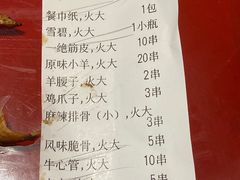 餐巾纸,火大 1包
雪碧,火大 1小瓶
一绝筋皮,火大 10串
原味小羊,火大 20串
羊腰子,火大 2串
鸡爪子,火大 3串
麻辣排骨（小）,火大 3串
风味脆骨,火大 5串
牛心管,火大 10串
5串